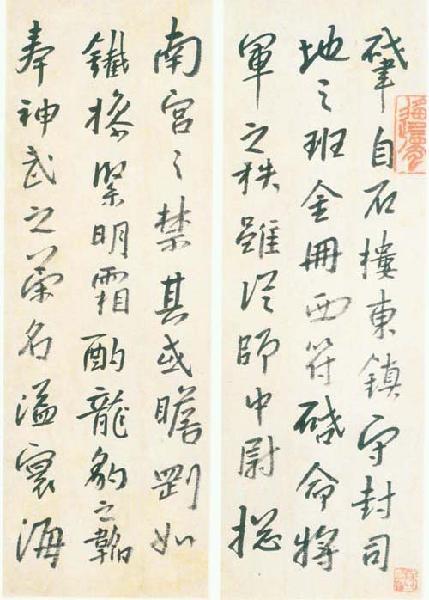 肇自石樓東鎮守封司
地之班金冊西符啓命將
軍之秩雖從師中尉總
南宮之禁其或膽剛如
鐵操緊明霜酌龍豹之韜
奉神武之榮名溢寰海